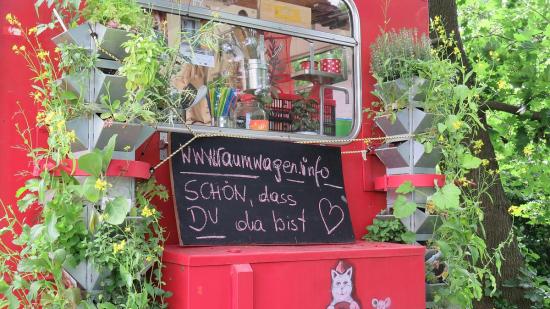 www.raumwagen.info
SCHÖN, dass
DU da bist ♡